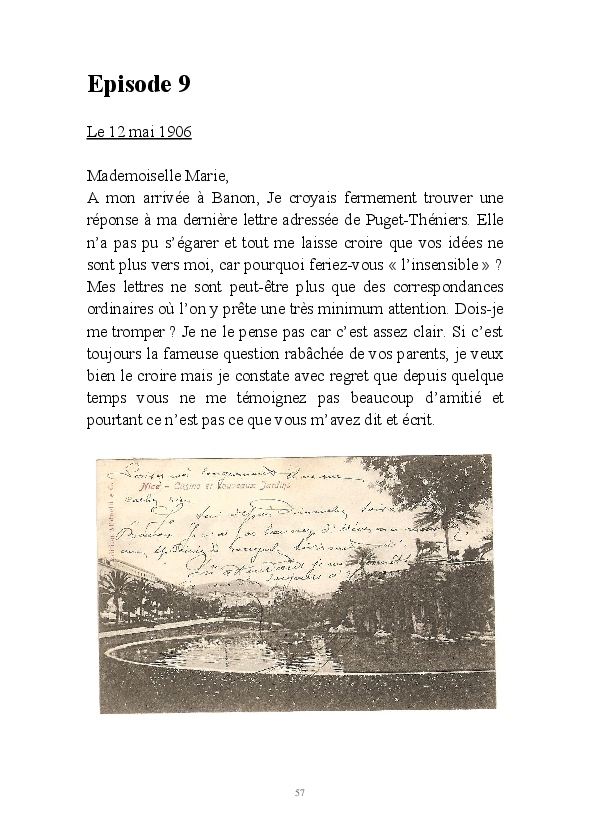 Episode 9
Le 12 mai 1906
Mademoiselle Marie,
A mon arrivée à Banon, Je croyais fermement trouver une
réponse à ma dernière lettre adressée de Puget-Théniers. Elle
n'a pas pu s'égarer et tout me laisse croire que vos idées ne
sont plus vers moi, car pourquoi feriez-vous « l'insensible » ?
Mes lettres ne sont peut-être plus que des correspondances
ordinaires où l'on y prête une très minimum attention. Dois-je
me tromper ? Je ne le pense pas car c'est assez clair. Si c'est
toujours la fameuse question rabâchée de vos parents, je veux
bien le croire mais je constate avec regret que depuis quelque
temps vous ne me témoignez pas beaucoup d'amitié et
pourtant ce n'est pas ce que vous m'avez dit et écrit.
Nice - Casino et Nouveaux Jardins
57